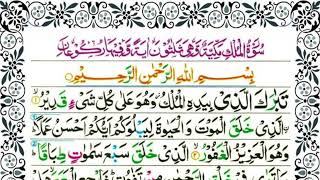 سُوْرَةُ الْمُلْكِ مَكِّيَّةٌ وَّهِيَ ثَلٰثُوْنَ اٰيَةً وَّفِيْهَا رُكُوْعَانِ
بِسْمِ اللهِ الرَّحْمٰنِ الرَّحِيْمِ
تَبٰرَكَ الَّذِيْ بِيَدِهِ الْمُلْكُ وَهُوَ عَلٰى كُلِّ شَيْءٍ قَدِيْرُ ۙ﴿۱﴾
الَّذِيْ خَلَقَ الْمَوْتَ وَالْحَيٰوةَ لِيَبْلُوَكُمْ اَيُّكُمْ اَحْسَنُ عَمَلًا
وَهُوَ الْعَزِيْزُ الْغَفُوْرُ ۙ﴿۲﴾ الَّذِيْ خَلَقَ سَبْعَ سَمٰوٰتٍ طِبَاقًا